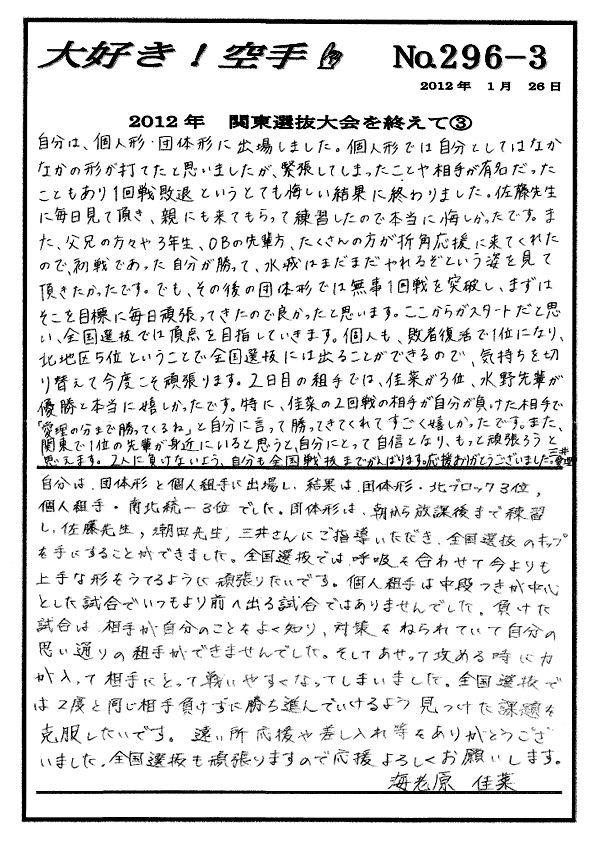 大好き！空手 No.296-3
2012年 1月 26日
2012年 関東選抜大会を終えて③
自分は、個人形・団体形に出場しました。個人形では自分としてはなか
なかの形が打てたと思いましたが、緊張してしまったことや相手が有名だった
こともあり1回戦敗退というとても悔しい結果に終わりました。佐藤先生
に毎日見て頂き、親にも来てもらって練習したので本当に悔しかったです。ま
た、父兄の方々や3年生、OBの先輩方、たくさんの方が折角応援に来てくれた
ので、初戦であった自分が勝って、水城はまだまだやれるぞという姿を見て
頂きたかったです。でも、その後の団体形では無事1回戦を突破し、まずは
そこを目標に毎日頑張ってきたので良かったと思います。ここからがスタートだと思
い、全国選抜では頂点を目指していきます。個人も、敗者復活で1位になり、
北地区5位ということで全国選抜には出ることができるので、気持ちを切
り替えて今度こそ頑張ります。2日目の組手では、佳菜が3位、水野先輩が
優勝と本当に嬉しかったです。特に、佳菜の2回戦の相手が自分が負けた相手で
「愛理の分まで勝ってくるね」と自分に言って勝ってきてくれてすごく嬉しかったです。また、
関東で1位の先輩が身近にいると思うと、自分にとって自信となり、もっと頑張ろうと
思えます。2人に負けないよう、自分も全国戦抜までがんばります。応援ありがとうございました。三井愛理
自分は、団体形と個人組手に出場し、結果は、団体形・北ブロック3位,
個人組手・南北統一3位でした。団体形は、朝から放課後まで練習
し、佐藤先生,潮田先生,三井さんにご指導いただき、全国選抜のキップ
を手にすることができました。全国選抜では、呼吸を合わせて今よりも
上手な形をうてるように頑張りたいです。個人組手は中段つきが中心
とした試合でいつもより前へ出る試合ではありませんでした。負けた
試合は、相手が自分のことをよく知り、対策をねられていて自分の
思い通りの組手ができませんでした。そしてあせって攻める時に力
が入って相手にとって戦いやすくなってしまいました。全国選抜で
は2度と同じ相手負けずに勝ち進んでいけるよう見つけた課題を
克服したいです。遠い所応援や差し入れ等をありがとうござ
いました。全国選抜も頑張りますので応援よろしくお願いします。
海老原 佳菜